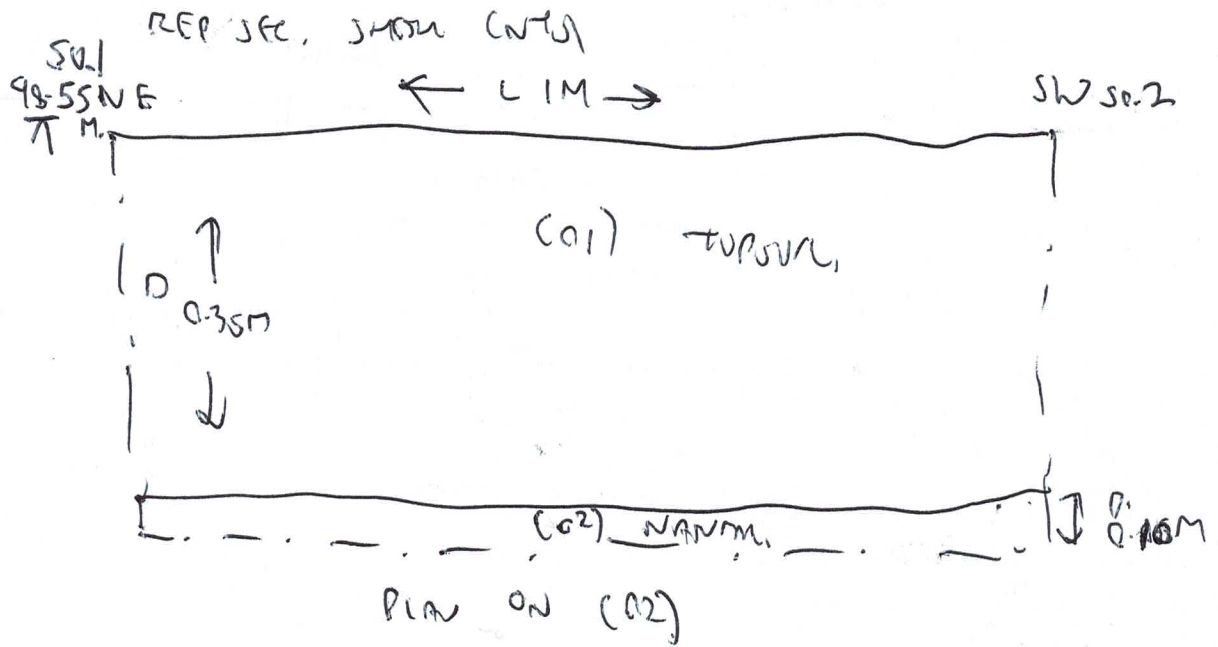 REP SEC. (NTS)
50.1
98.55M NE
← L 1M →
SW 50.2
(01) TOPSOIL
D
0.35M
(02) NATURAL
0.10M
PLAN ON (02)